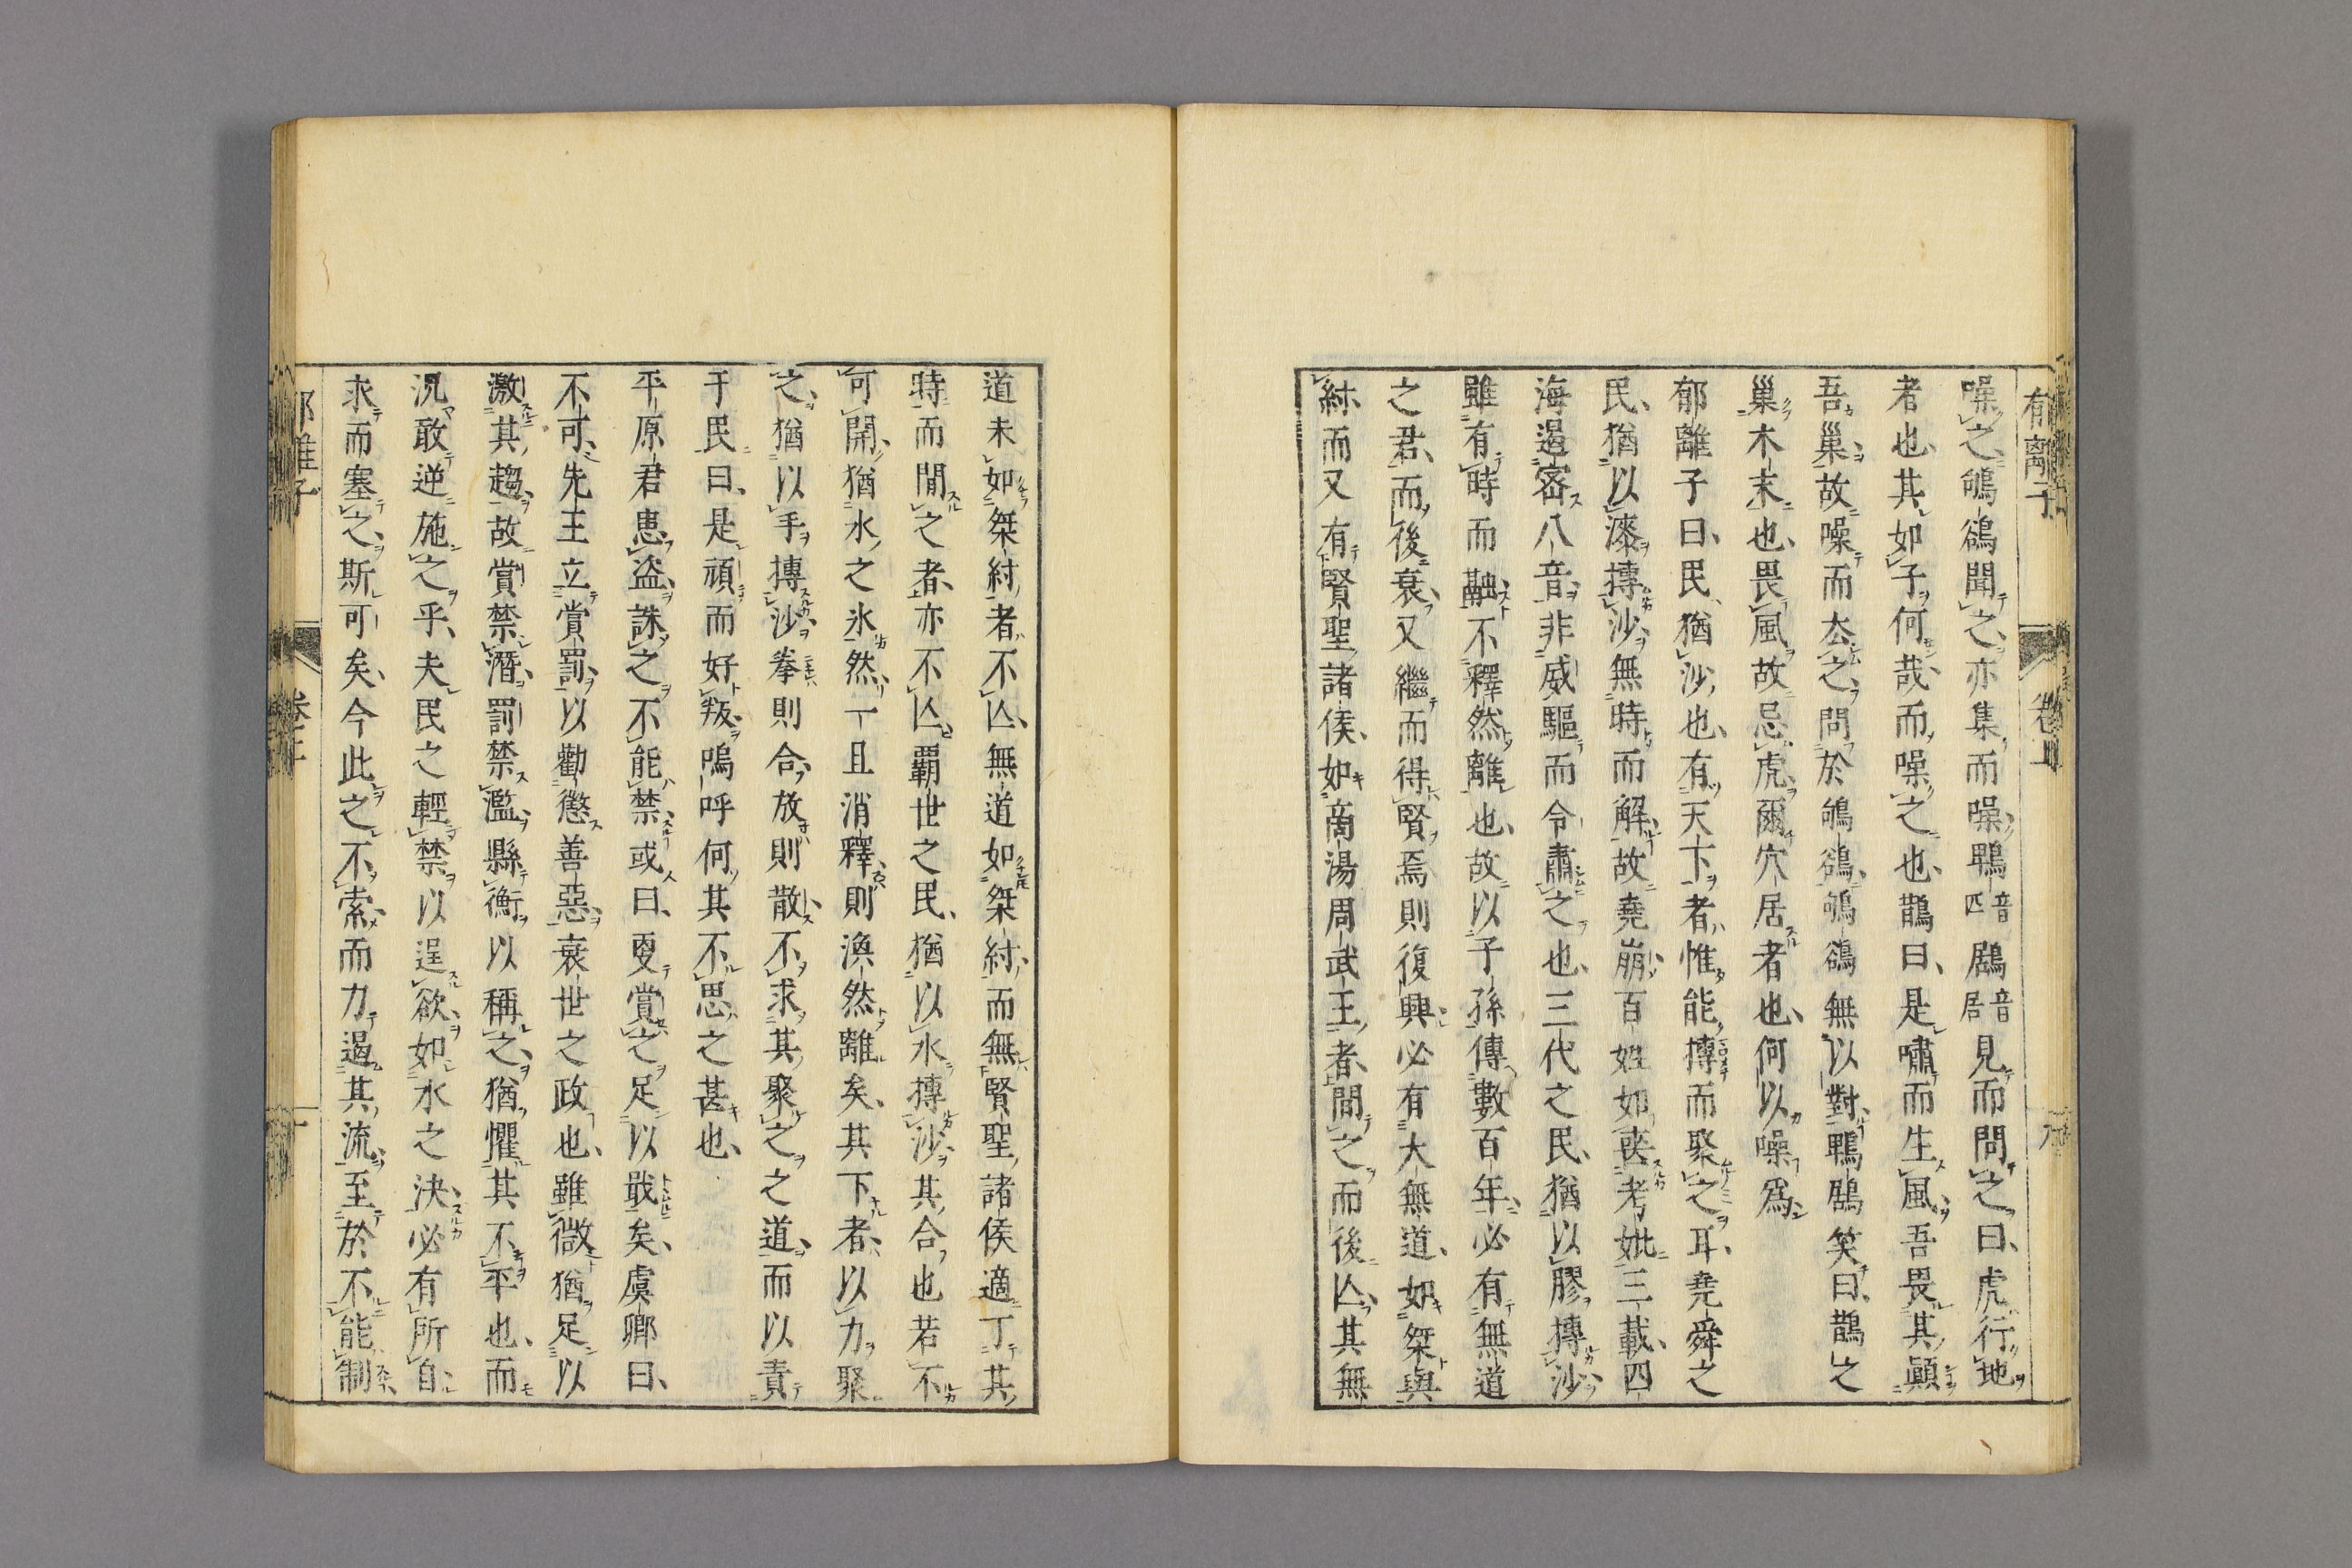 噪之鴝鵒聞之亦集而噪鵯音匹鶋音居見而問之曰虎行地
者也其如子何哉而噪之也鵲曰是嘯而生風吾畏其顚
吾巢故噪而去之問於鴝鵒鴝鵒無以對鵯鶋笑曰鵲之
巢木末也畏風故忌虎爾穴居者也何以噪爲
郁離子曰民猶沙也有天下者惟能摶而聚之耳堯舜之
民猶以漆摶沙無時而解故堯崩百姓如喪考妣三載四
海遏密八音非威驅而令肅之也三代之民猶以膠摶沙
雖有時而融不釋然離也故以子孫傳數百年必有無道
之君而後衰又繼而得賢焉則復興必有大無道如桀與
紂而又有賢聖諸侯如商湯周武王者間之而後亾其無
郁離子
卷上
道未如桀紂者不亾無道如桀紂而無賢聖諸侯適丁其
時而間之者亦不亾覇世之民猶以水摶沙其合也若不
可開猶水之氷然一且消釋則渙然離矣其下者以力聚
之猶以手摶沙拳則合放則散不求其聚之之道而以責
于民曰是頑而好叛嗚呼何其不思之甚也
平原君患盗誅之不能禁或曰更賞之足以戢矣虞卿曰
不可先王立賞罰以勸懲善惡衰世之政也雖微猶足以
激其趨故賞禁僭罰禁濫縣衡以稱之猶懼其不平也而
況敢逆施之乎夫民之輕禁以逞欲如水之決必有所自
求而塞之斯可矣今此之不索而力遏其流至於不能制